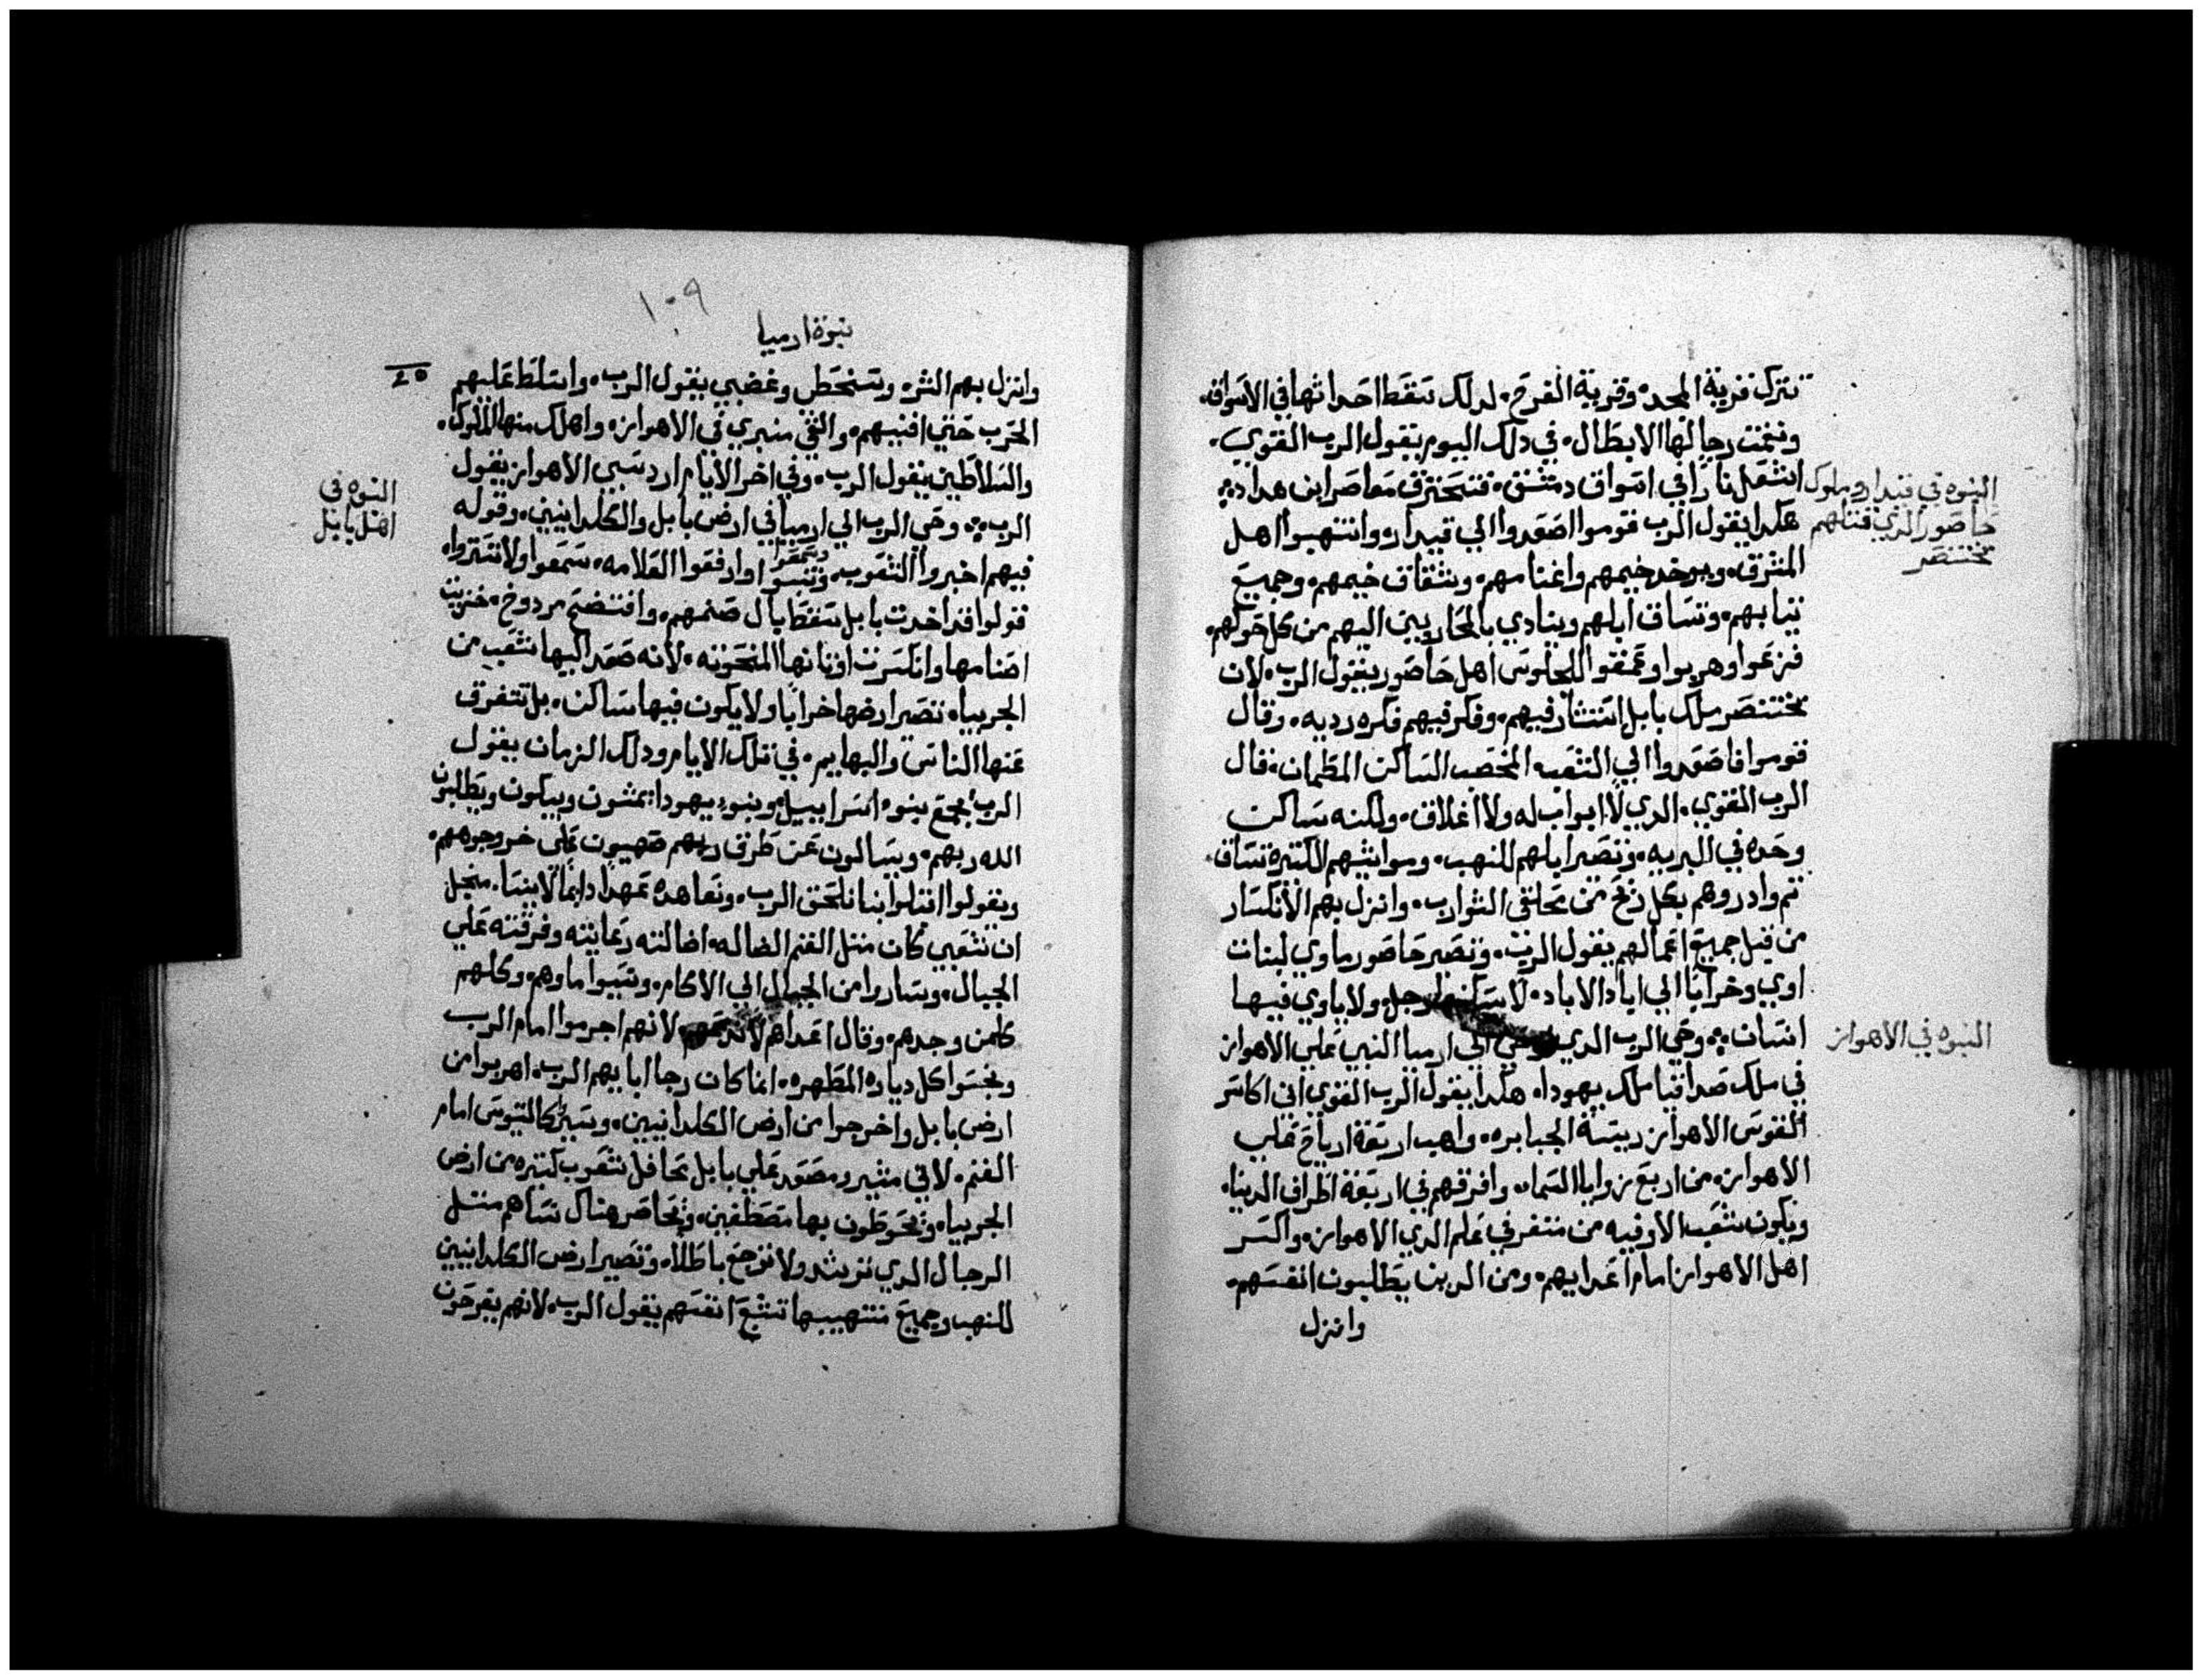 تترك قرية المجد، وقرية الفرح، لدلك تسقط احداثها في الاسواق،
رجالها الابطال، في دلك اليوم يقول الرب القوي،
اشعل نارًا في اسواق دمشق، فتحترق معاصر ابن هداد
هكدا يقول الرب قوموا اصعدوا الي قيدار، وانتهبوا اهل
المشرق، ويوخد خيمهم واغنامهم، وشقاق خيمهم، وجميع
تيابهم، وتساق ابلهم وينادي بالمحاربين اليهم من كل حولهم،
فزعوا وهربوا وتعمقوا للجلوس اهل حاصور يقول الرب، لان
بختنصر ملك بابل استشار فيهم، وفكر فيهم فكره رديه، وقال
قوموا فاصعدوا الي الشعب المخصب الساكن المطمان، قال
الرب القوي، الدي لا ابواب له ولا اغلاق، ولكنه ساكن
وحده في البريه، وتصير ابلهم للنهب، ومواشيهم الكتيرة تساق،
تم وادروهم بكل ريح من محلقي الشوارب، وانزل بهم الانكسار
من قبل جميع اعمالهم يقول الرب، وتصير حاصور ماوي لبنات
اوي وخرابًا الي اباد الاباد، لا يسكنها رجل، ولا ياوي فيها
انسان، وحي الرب الدي اوحي الي ارميا النبي علي الاهواز
في ملك صداقيا ملك يهودا، هكدا يقول الرب القوي اني اكاسر
القوس الاهواز ريسة الجبابره، واهب اربعة ارياح علي
الاهواز، من اربع زوايا السما، وافرقهم في اربعة اطراف الدنيا،
ويكون شعب الا وفيه من متفرفي علم الدي الاهواز، واكسر
اهل الاهواز امام اعدايهم، ومن الدين يطالبون انفسهم،
وانزل
النبوه في قيدار وملوك
حاصور الدي قتلهم
بختنصر
النبوه في الاهواز
١٠٩
نبوة ارميا
وانزل بهم الشر، وسخطي وغضبي يقول الرب، واسلط عليهم
الحرب حتي افنيهم، والقي منبري في الاهواز، واهلك منها الملوك،
والسلاطين يقول الرب، وفي اخر الايام ارد سبي الاهواز يقول
الرب، وحي الرب الي ارميا في ارض بابل والكلدانيين، وقوله
فيهم اخبروا الشعوب، وارفعوا العلامه، سمعوا ولا تستروا،
وسمعوا
قولوا قد اخدت بابل تسقط بال صنمهم، وافتضح مردوخ، خزيت
اصنامها وانكسرت اوتانها المنحوته، لانه صعد اليها شعب من
الجربيا، تصير ارضها خرابًا ولا يكون فيها ساكن، بل تتفرق
عنها الناس والبهايم، في تلك الايام ودلك الزمان يقول
الرب يجمع بنوه اسراييل، وبنوه يهودا، يمشون ويبكون ويطلبون
الله ربهم، ويسالون عن طرق ربهم صهيون علي خروجوههم،
ويقولوا اقبلوا بنا نلحق الرب، ونعاهده عهدًا دايمًا لا ينسا، مجل
ان شعبي كان متل الغنم الضاله، اضالته رعايته وفرقته علي
الجبال، وساروا من الجبال الي الاكام، ونسيوا ماوهم، وكلهم
كلمن وجدهم، وقال اعداهم لانهم اجرموا امام الرب
ونجسوا كل دياره المطهره، انما كان رجا ابايهم الرب، اهربوا من
ارض بابل واخرجوا من ارض الكلدانيين، وسيرو كالتيوس امام
الغنم، لاني متير ومصعد علي بابل محافل شعوب كتيره من ارض
الجربيا، ويحوطون بها مصطفين، وتحاصر هناك نساهم متل
الرجال الدي ترشد ولا ترجع باطلا، وتصير ارض الكلدانيين
للنهب وجميع منتهبيها تشبع انفسهم يقول الرب، لانهم يفرحون
النبوه في
اهل بابل